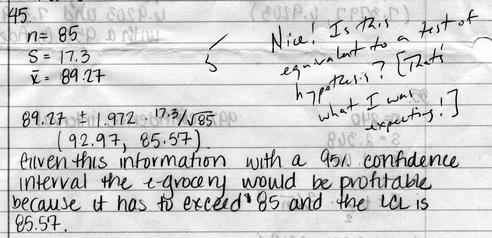 45.
n = 85
S = 17.3
x̄ = 89.27
5
Nice! Is this
equivalent to a test of
hypothesis? [That's
what I was
expecting!]
89.27 ± 1.972 17.3/√85
(92.97, 85.57)
Given this information with a 95% confidence
interval the e-grocery would be profitable
because it has to exceed $85 and the LCL is
85.57.